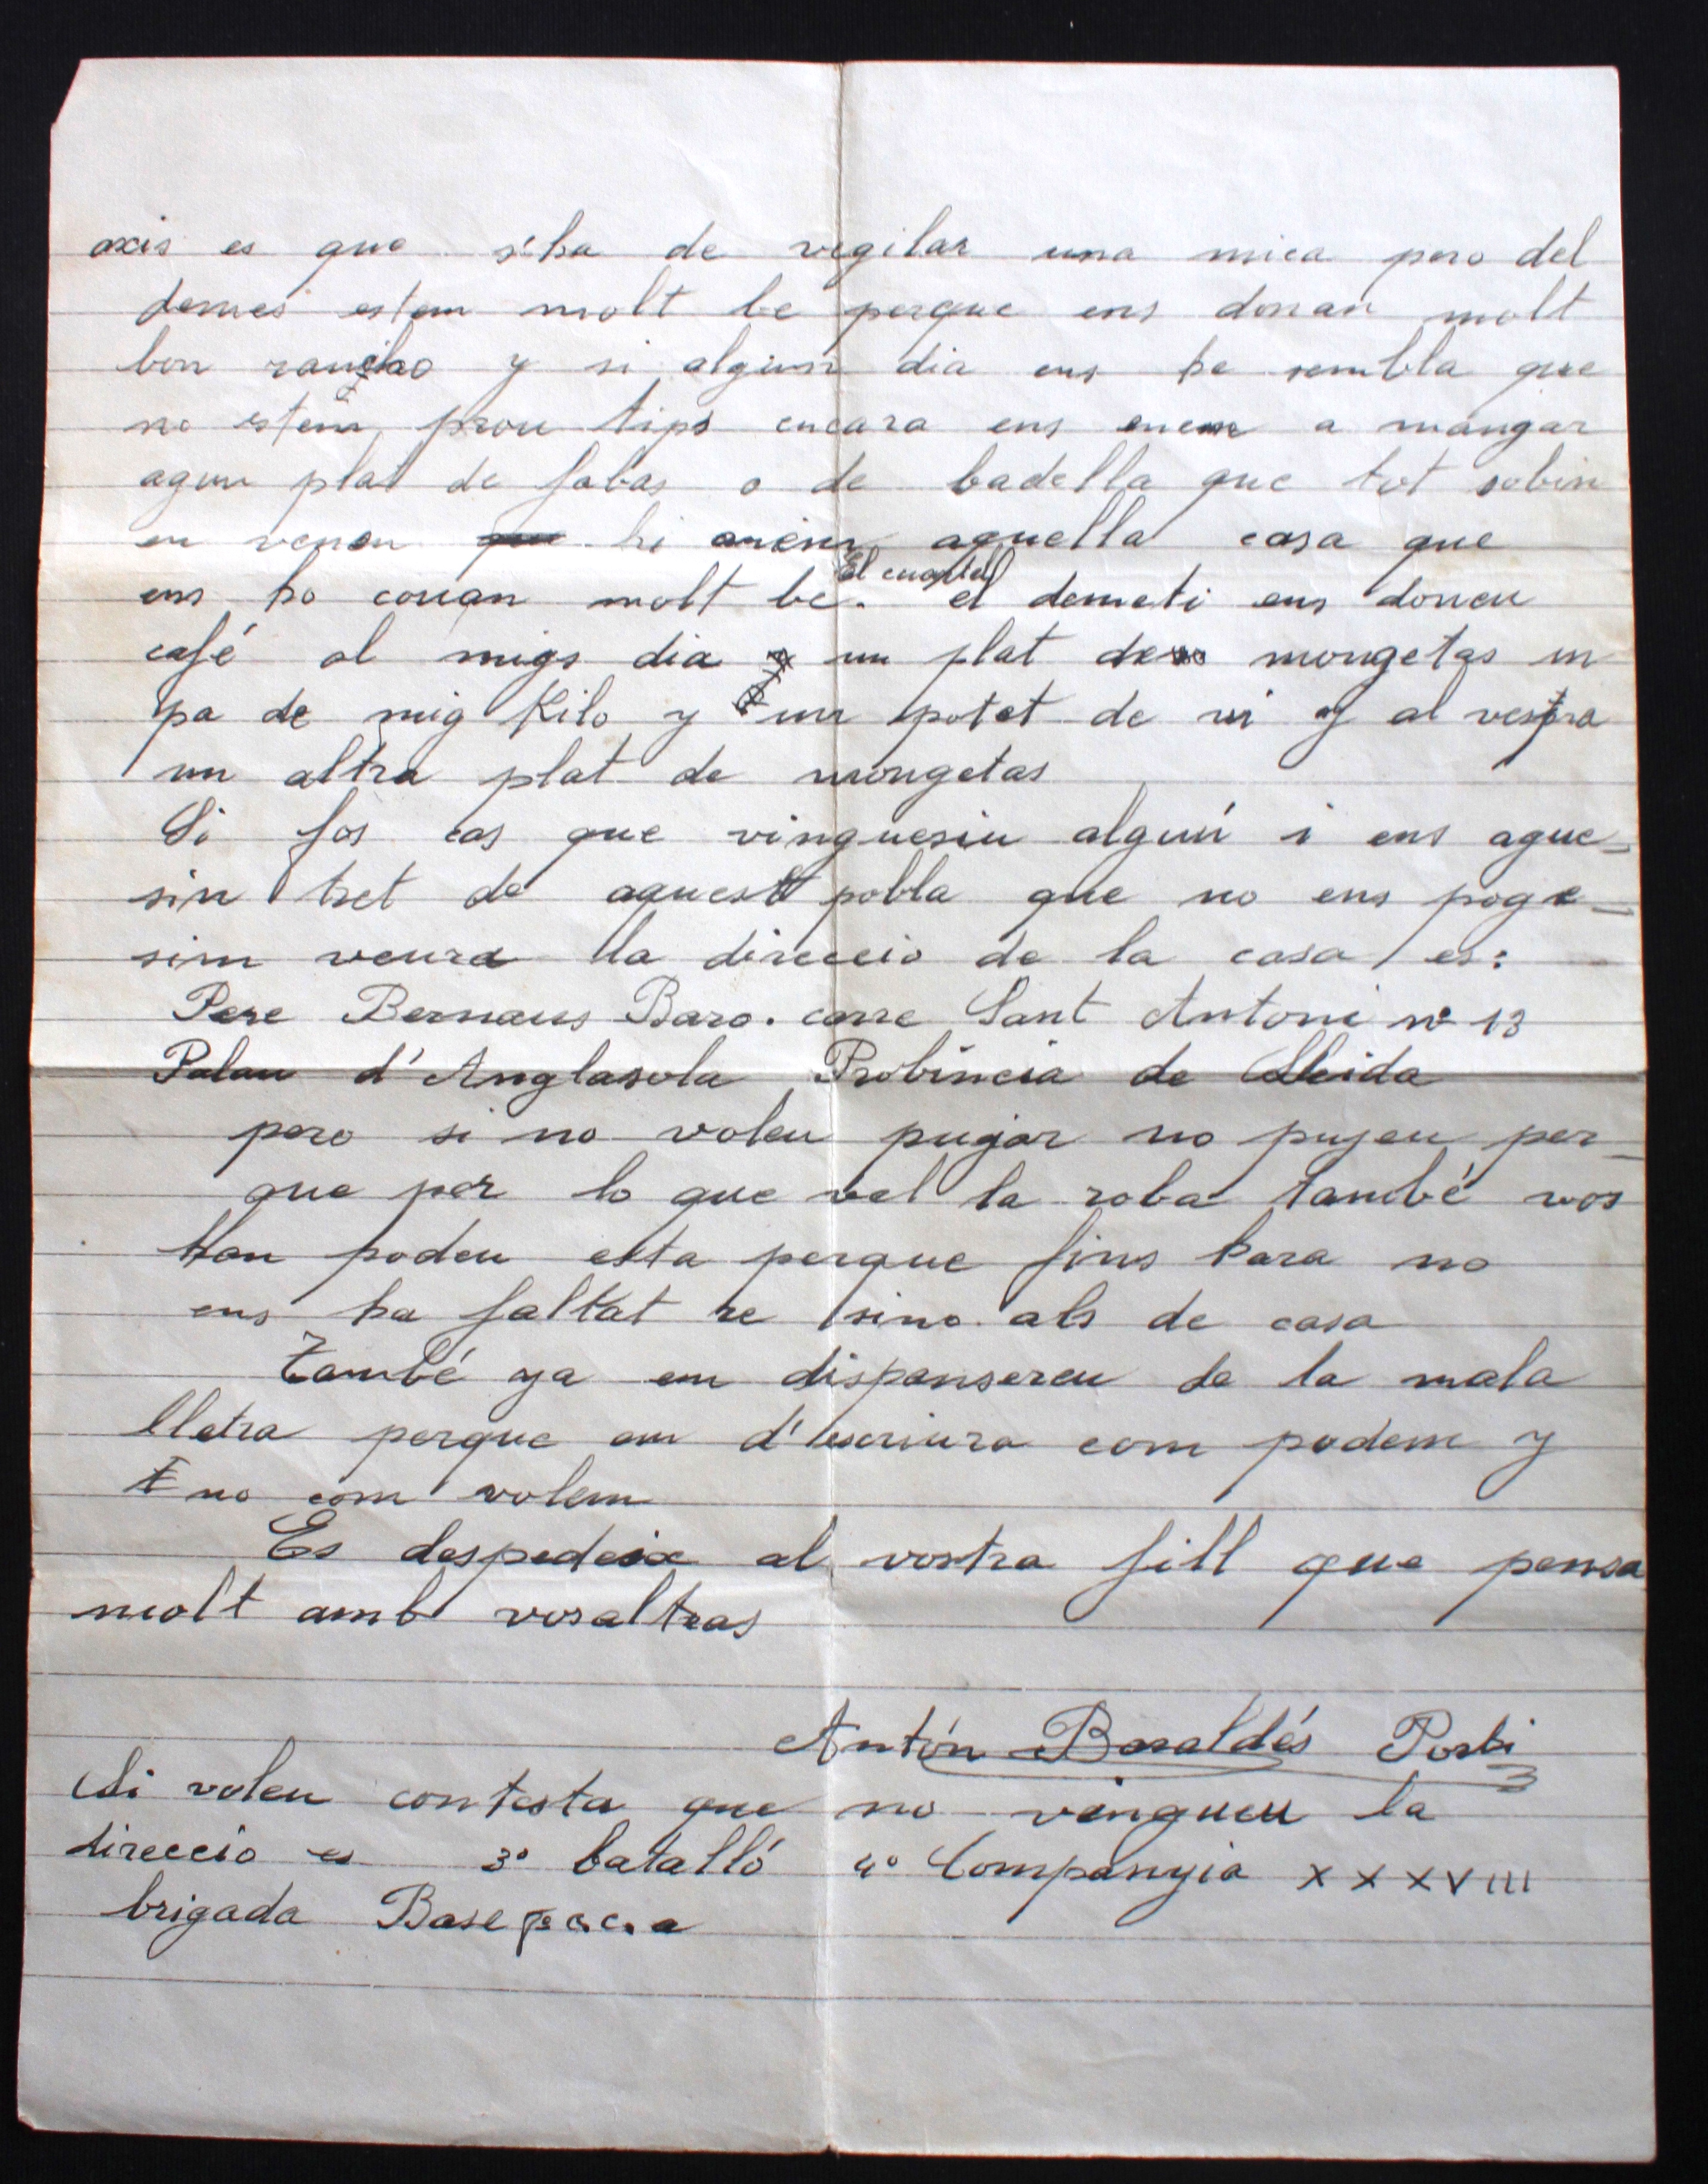 axis es que s'ha de vegilar una mica pero del
demes estem molt be perque ens donan molt
bon rancho y si algun dia ens ha sembla que
no estem prou tips encara ens anem a mangar
agun plat de fabas o de badella que tot sobin
en venen hi anem aquella casa que
ens ho couan molt be. El cuartel el demati ens doneu
café al migs dia un plat de mongetas un
pa de mig Kilo y un potet de vi y al vespra
un altra plat de mongetas
Si fos cas que vinguesiu algun i ens ague-
sin tret de aquest pobla que no ens poge-
sim veura la direccio de la casa es:
Pere Bernaus Baro. carre Sant Antoni nº 13
Palau d'Anglasola Probincia de Lleida
pero si no voleu pujar no pujeu per-
que per lo que val la roba també vos
hon podeu esta perque fins hara no
ens ha faltat re sino als de casa
També ya em dispensereu de la mala
lletra perque em d'escriura com podem y
no com volem
Es despedeix al vostra fill que pensa
molt amb vosaltras
Antón Basaldés Porti
Si voleu contesta que no vingueu la
direccio es 3º batalló 4º Companyia XXXVIII
brigada Base